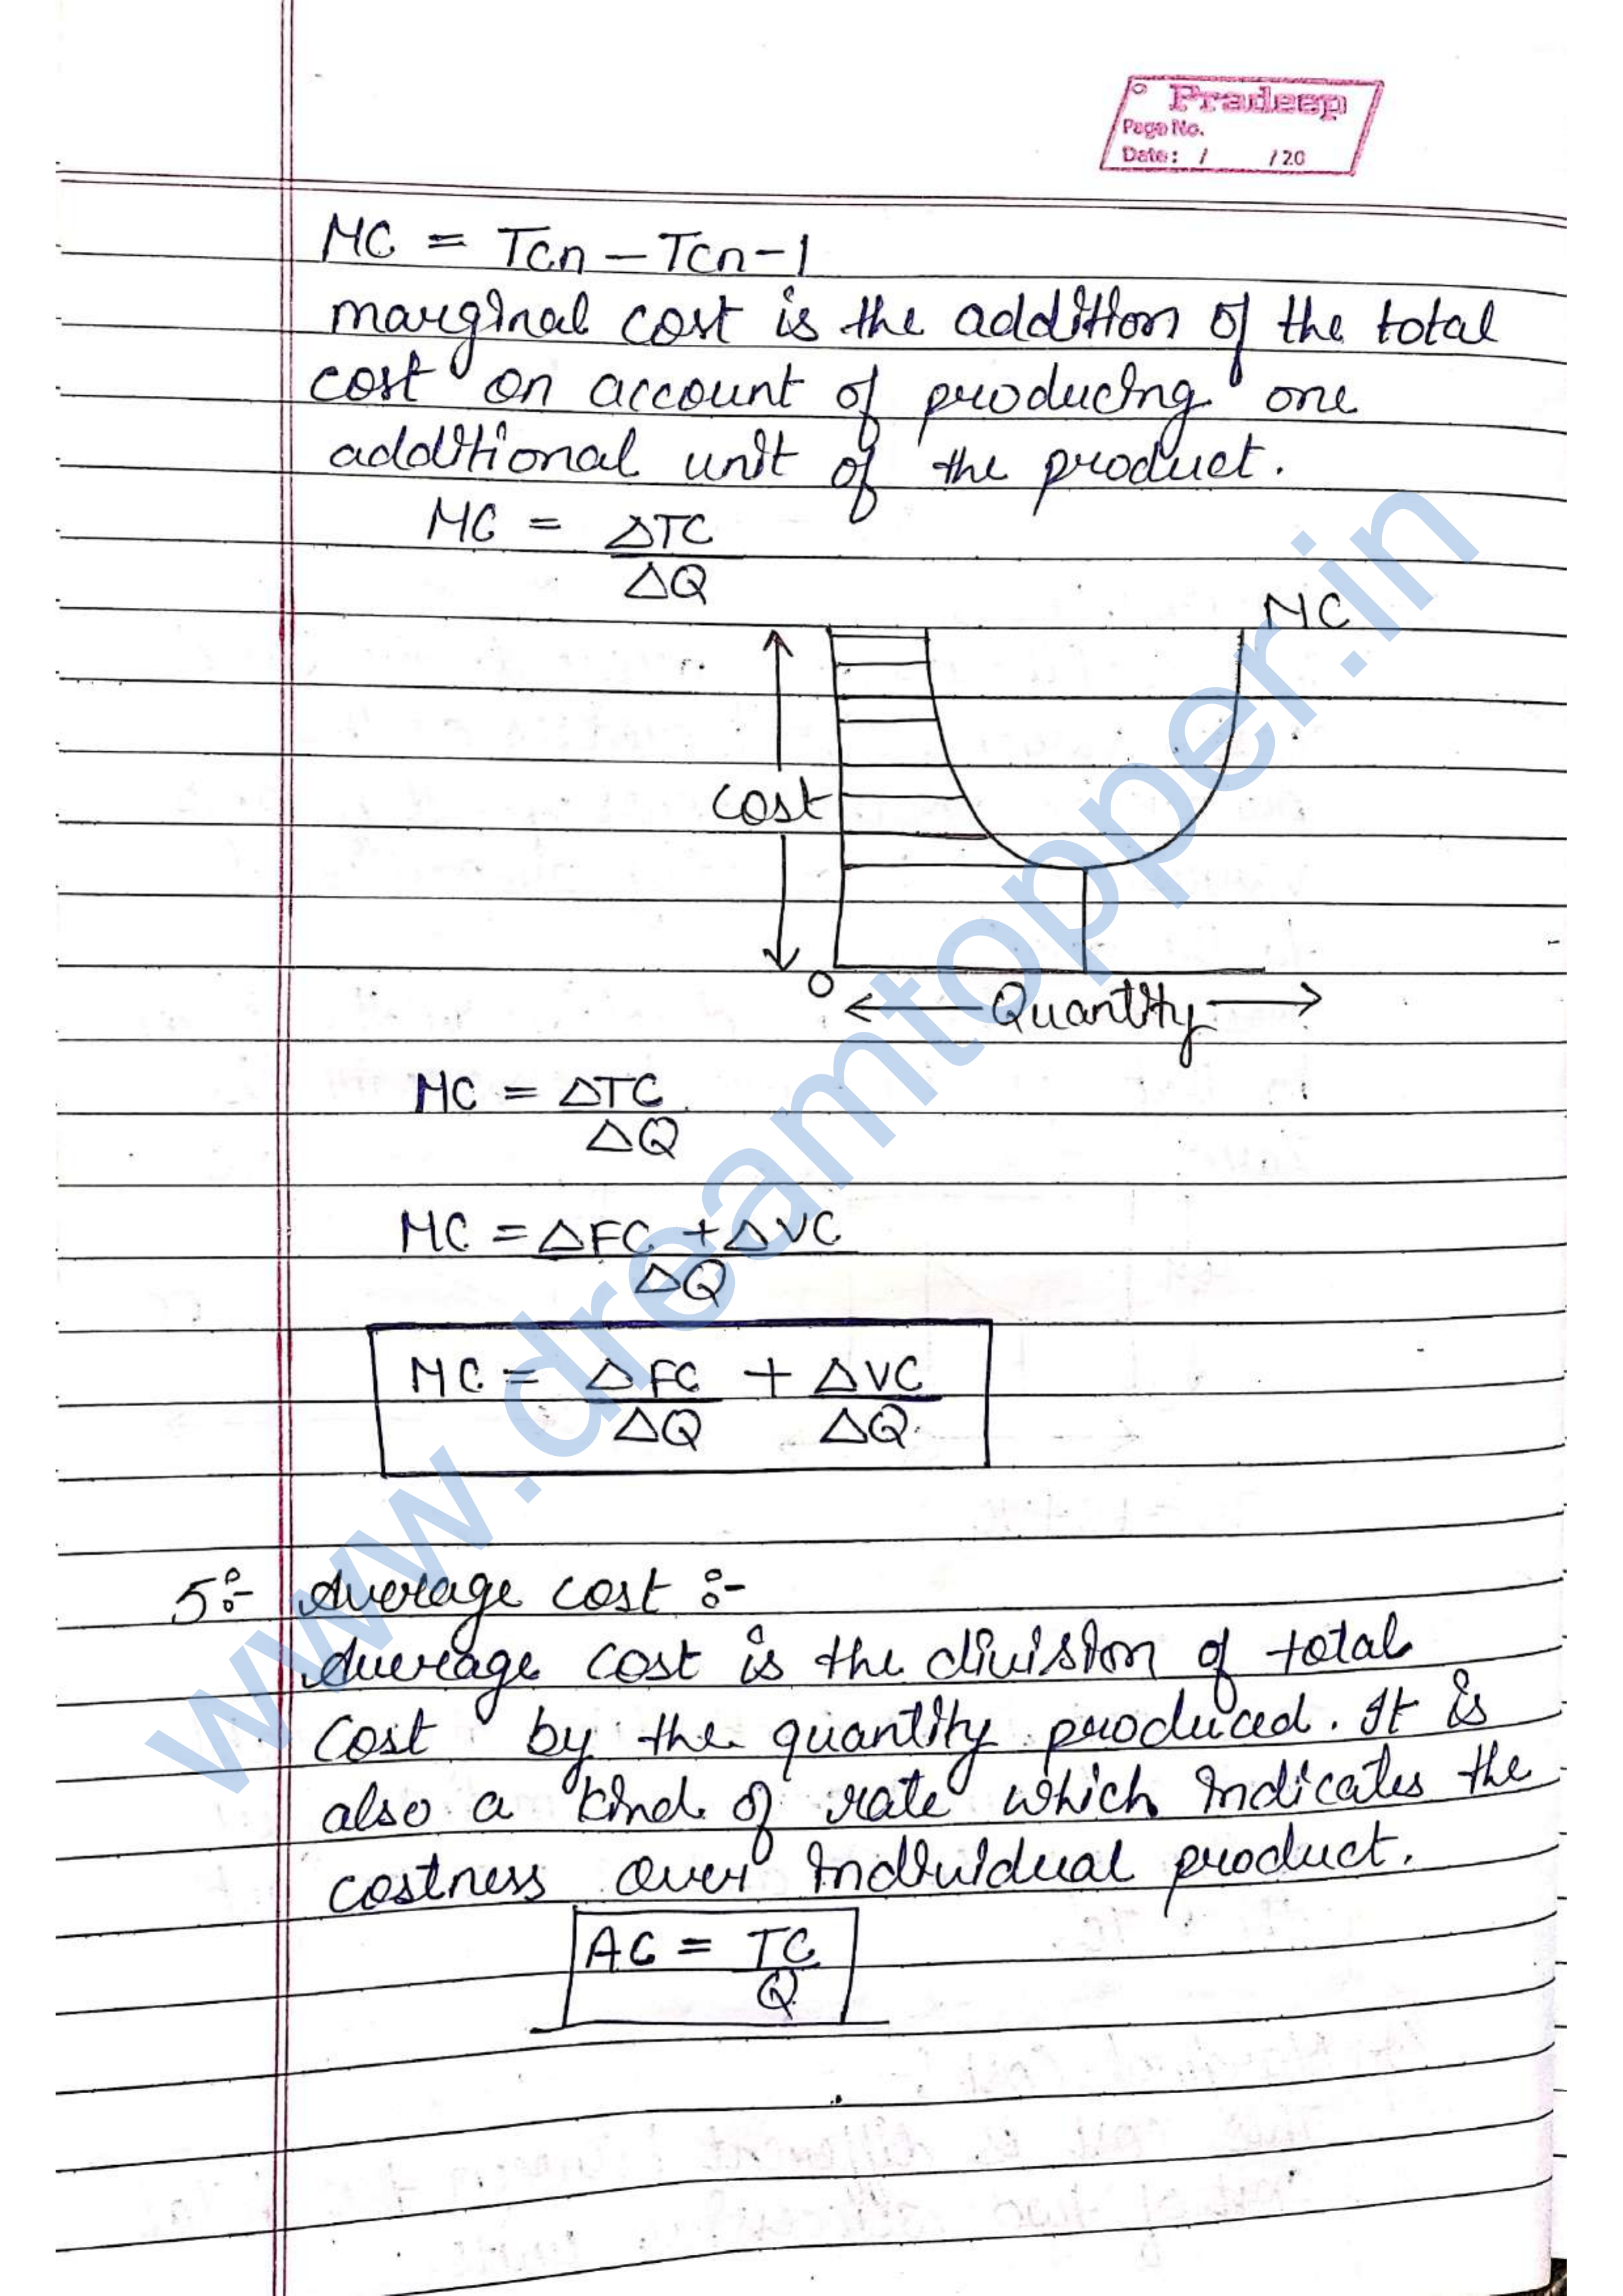 Pradeep
Page No.
Date: / /20
MC = Tcn - Tcn-1
marginal cost is the addition of the total
cost on account of producing one
additional unit of the product.
MC = ΔTC
ΔQ
MC
Cost
O
Quantity
MC = ΔTC
ΔQ
MC = ΔFC + ΔVC
ΔQ
MC = ΔFC + ΔVC
ΔQ ΔQ
5:- Average cost :-
Average cost is the division of total
cost by the quantity produced. It is
also a kind of rate which indicates the
costness over individual product.
AC = TC
Q
www.dreamtopper.in